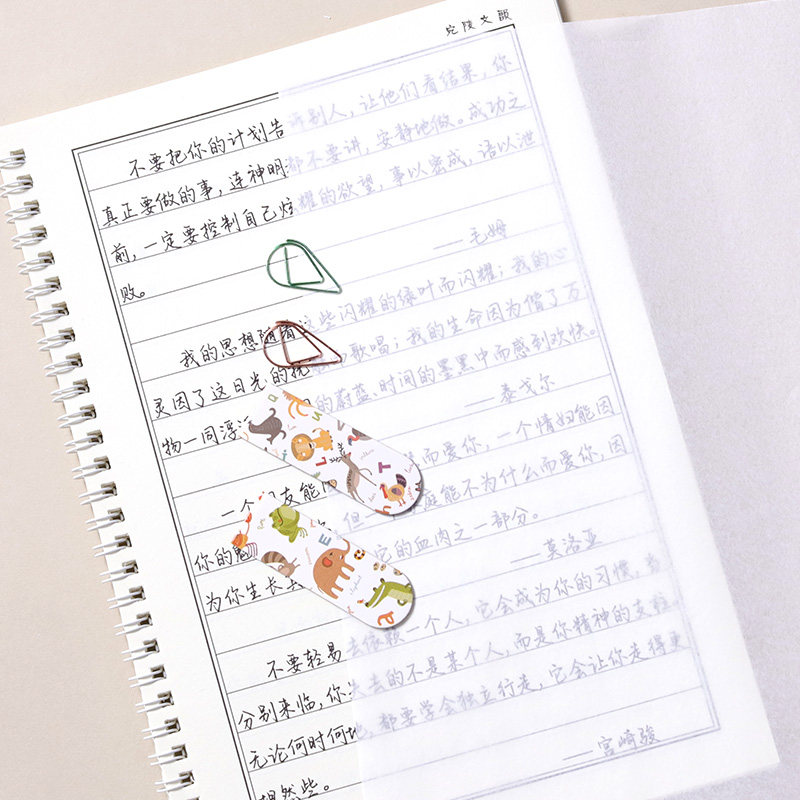 宛陵文韻
不要把你的计划告诉别人，让他们看结果，你
真正要做的事，连神明都不要讲，安静地做。成功之
前，一定要控制自己炫耀的欲望，事以密成，语以泄
败。
——毛姆
我的思想随着这些闪耀的绿叶而闪耀；我的心
灵因了这日光的抚 歌唱；我的生命因为偕了万
物一同浮 的蔚蓝、时间的墨黑中而感到欢快。
——泰戈尔
一个 友能 而爱你，一个情妇能因
你的 但一 能不为什么而爱你，因
为你生长 它的血肉之一部分。
——莫洛亚
不要轻易去依赖一个人，它会成为你的习惯，当
分别来临，你失去的不是某个人，而是你精神的支柱。
无论何时何地，都要学会独立行走，它会让你走得更
坦然些。
——宫崎骏
L
T
E